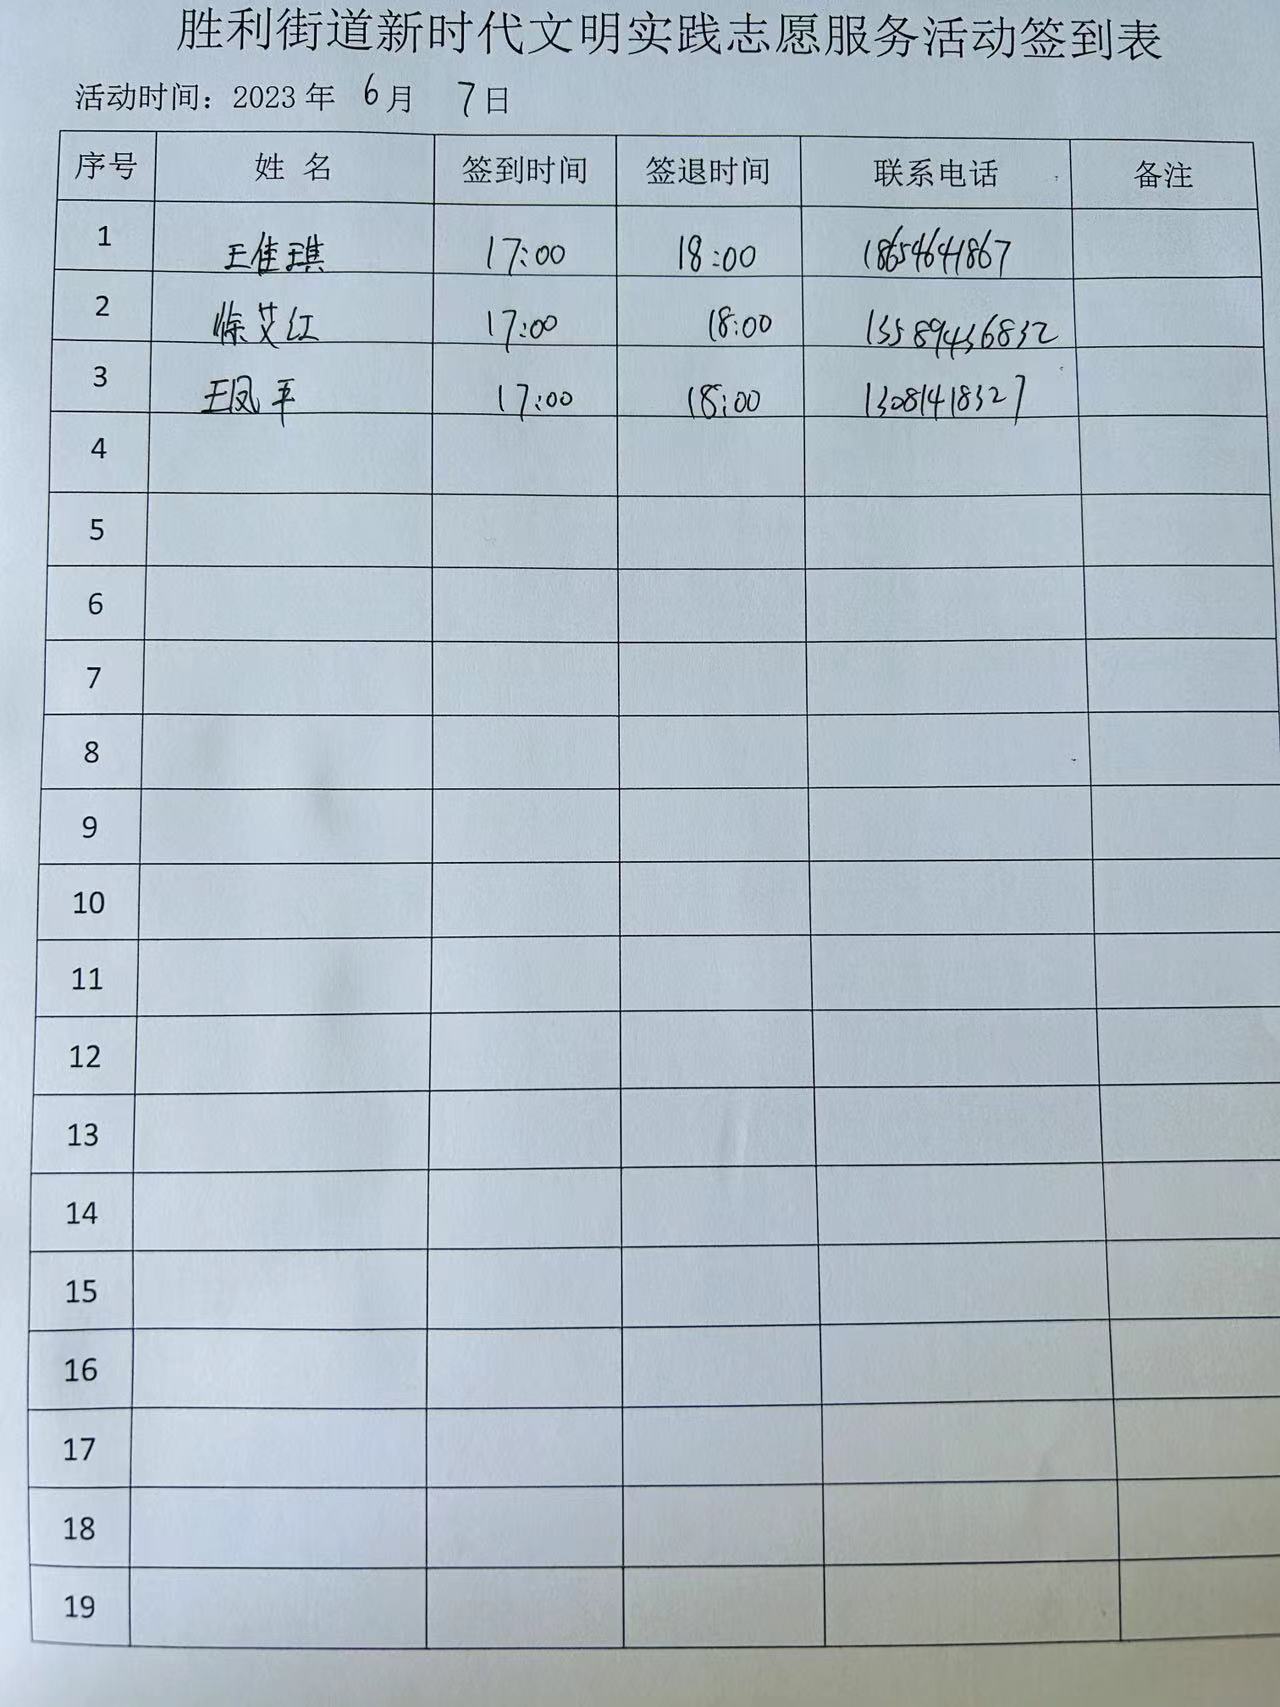 胜利街道新时代文明实践志愿服务活动签到表
活动时间：2023 年 6月 7日
序号 姓 名 签到时间 签退时间 联系电话 备注
1 王佳琪 17:00 18:00 18654641867
2 徐艾红 17:00 18:00 13589436832
3 王凤平 17:00 18:00 13081418327
4
5
6
7
8
9
10
11
12
13
14
15
16
17
18
19